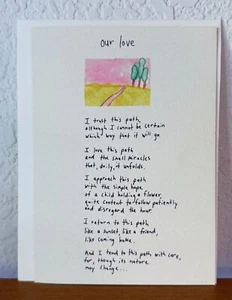 our love
I trust this path,
although I cannot be certain
which way that it will go
I love this path
and the small miracles
that, daily, it unfolds.
I approach this path
with the simple hope
of a child holding a flower,
quite content to follow patiently
and disregard the hour.
I return to this path
like a sunset, like a friend,
like coming home.
And I tend to this path with care,
for, though its nature
may change...